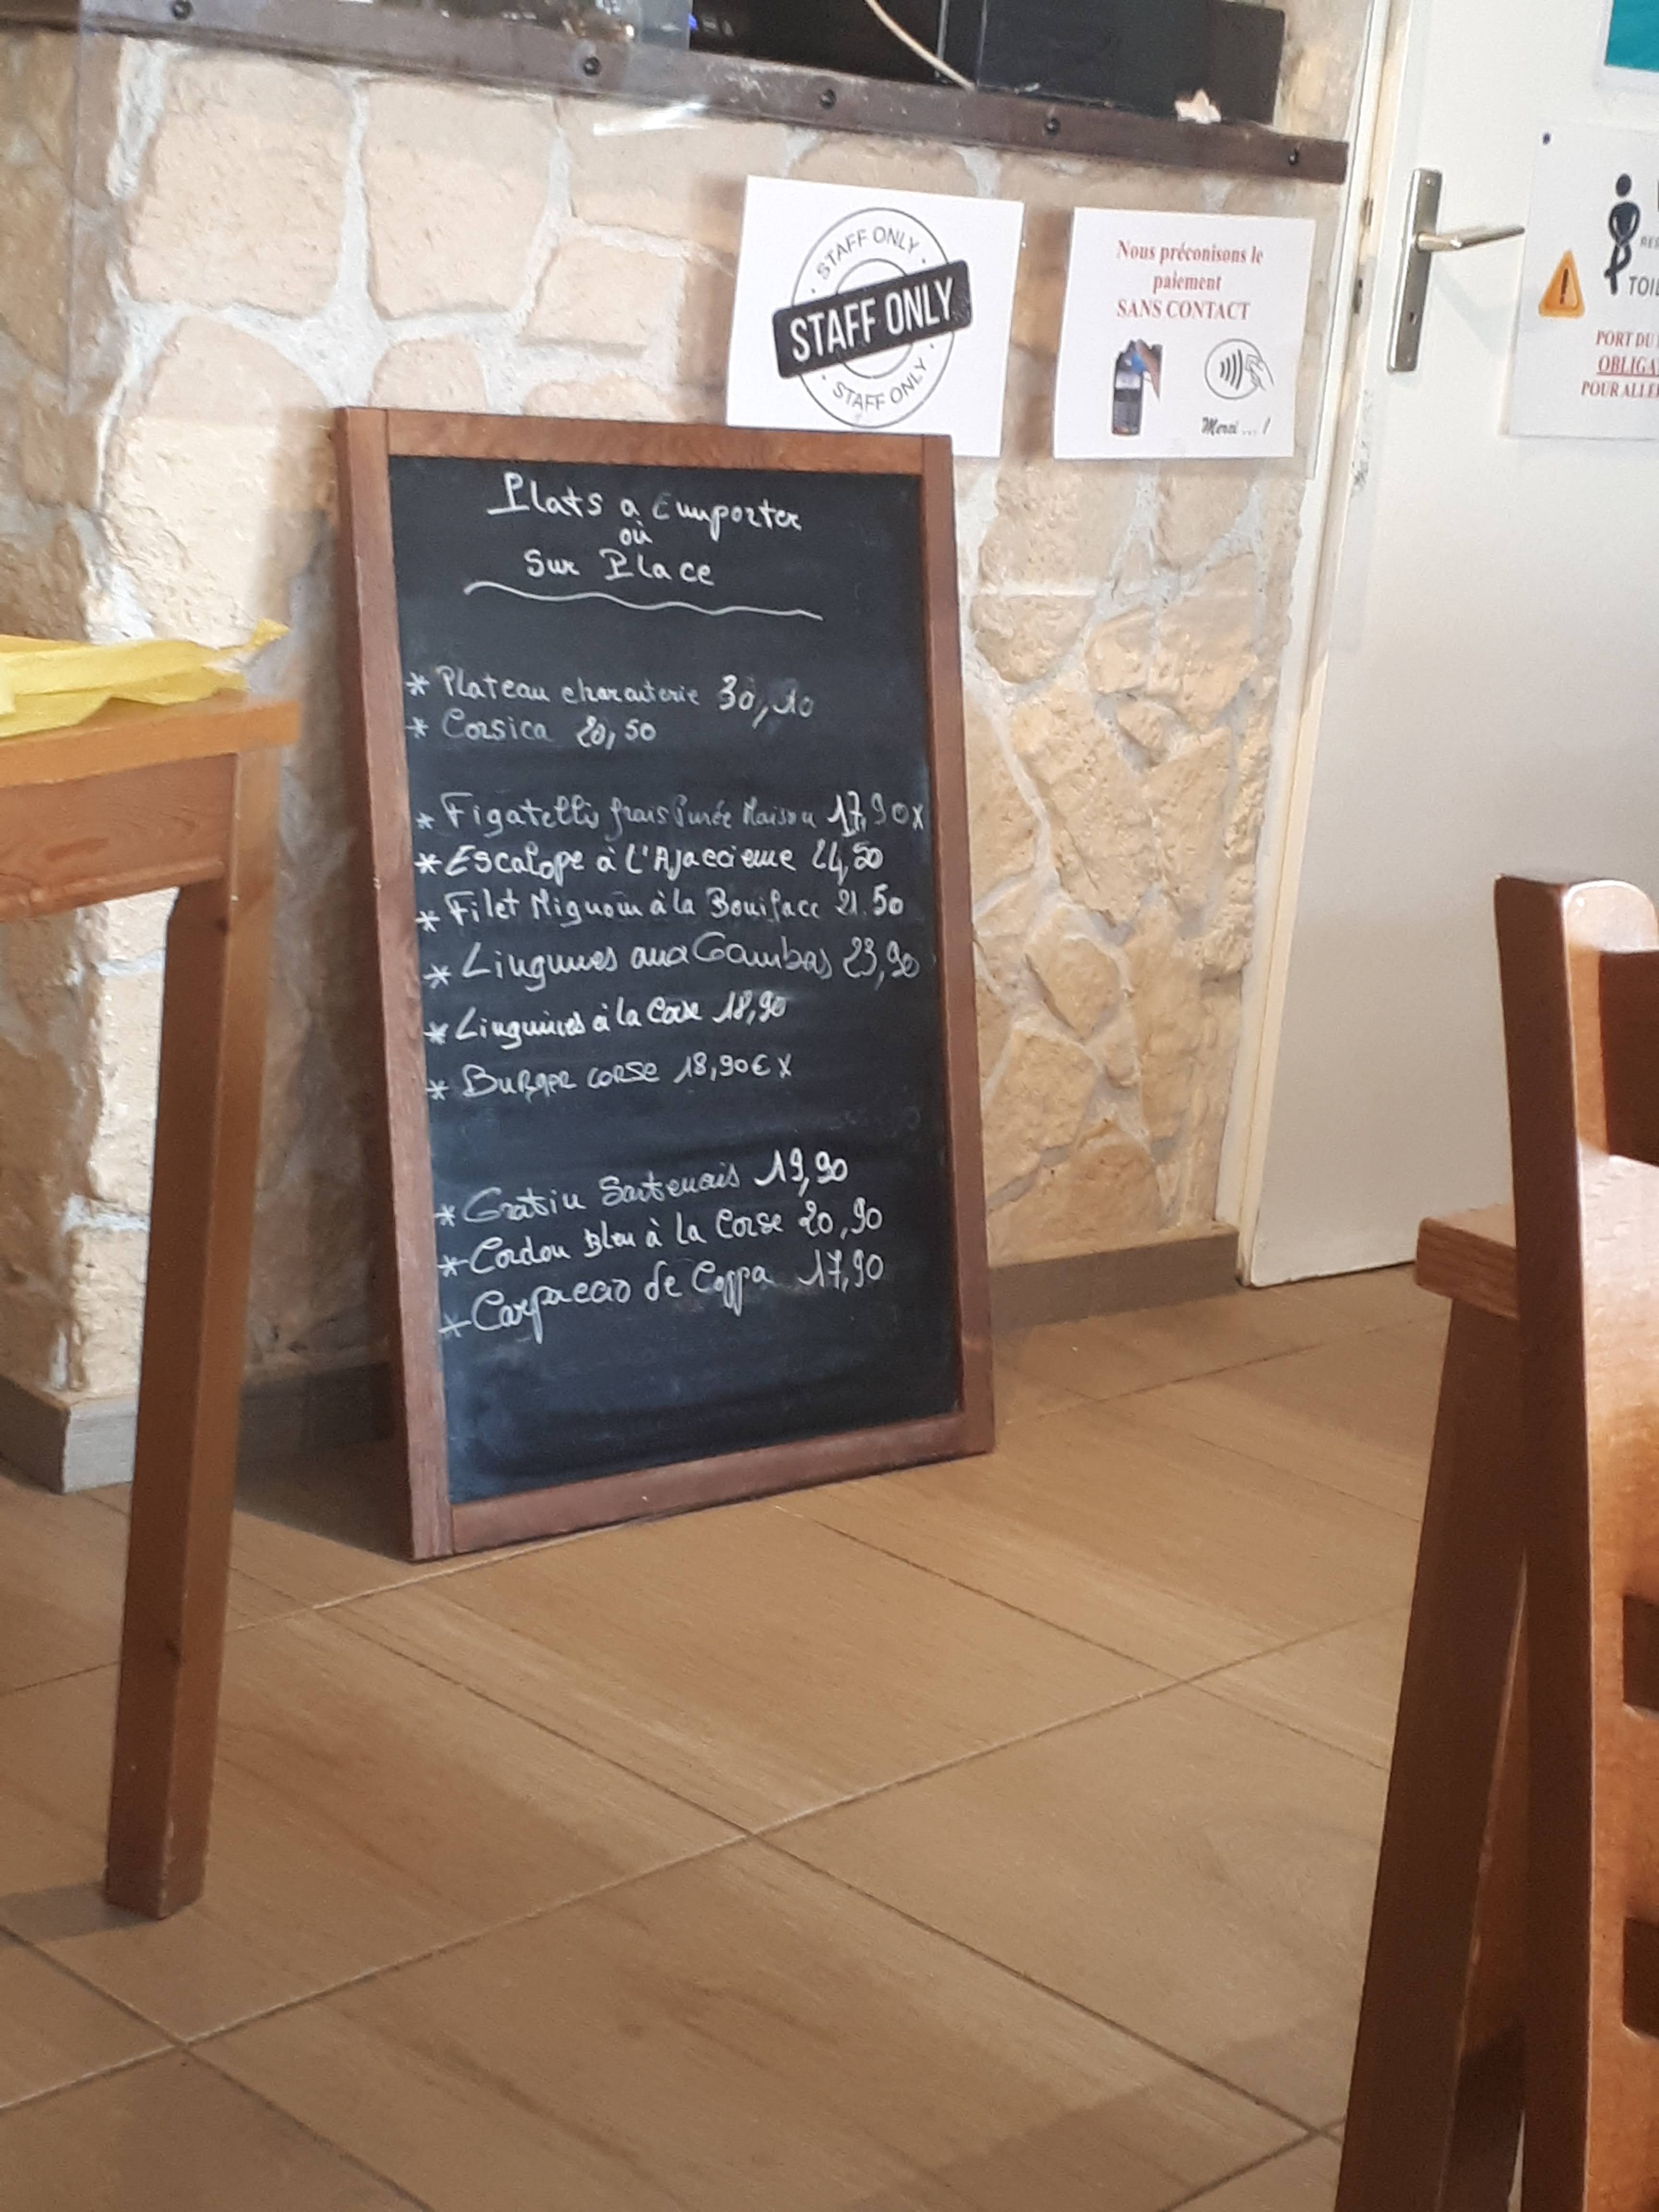 STAFF ONLY
STAFF ONLY
STAFF ONLY
Nous préconisons le
paiement
SANS CONTACT
Merci ... !
PORT DU
POUR
Plats a Emporter
où
Sur Place
* Plateau charcuterie 30,
* Corsica 20,50
* Figatelli frais Purée Maison 17,90 x
* Escalope à L'Ajaccienne
* Filet Mignon à la Boniface 21.50
* Linguines aux Gambas 23,90
* Linguines à la Corse 18,90
* Burger corse 18,90€ x
* Gratin Sartenais 19,90
* Cordon Bleu à la Corse 20,90
* Carpaccio de Coppa 17,90